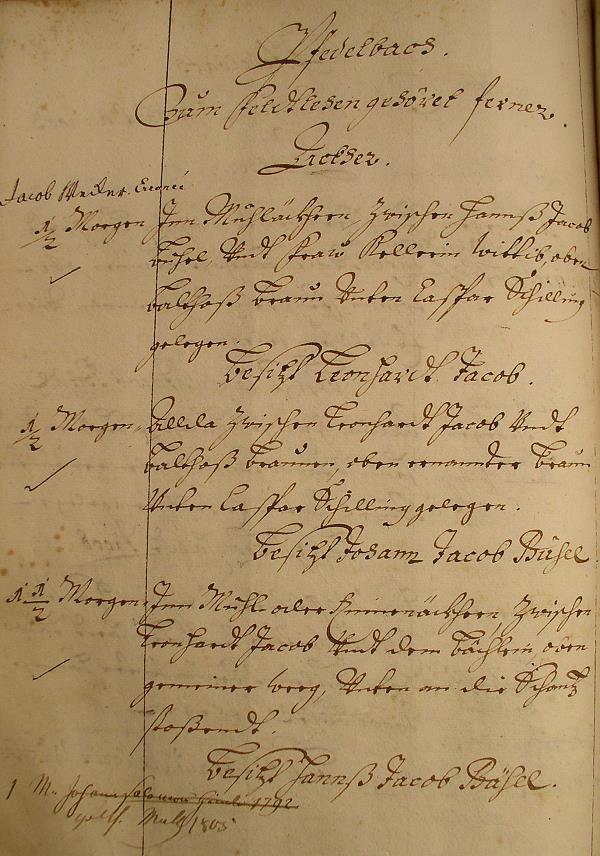 Pfedelbach.
Zum Feldtlehen gehöret ferner.
Äckher.
Jacob
1/2 Morgen Inn Mühläckhern, Zwischen Hannß Jacob
Büsel, Undt Fraw Kellerin Wittib, oben
Balthaß Braun Unten Caspar Schilling
gelegen.
Besitzt Leonhardt Jacob.
1/2 Morgen, Allda Zwischen Leonhardt Jacob Undt
Balthaß Braunen, oben ernannter Braun
Unten Caspar Schilling gelegen.
Besitzt Johann Jacob Büsel
1 1/2 Morgen, Inn Mühl oder Zwischen
Leonhardt Jacob Undt dem Bächlein, oben
gemeiner weeg, Unten an die Schantz
stoßendt.
Besitzt Hannß Jacob Büsel.
1 M. Johann Salomon 1792
1805